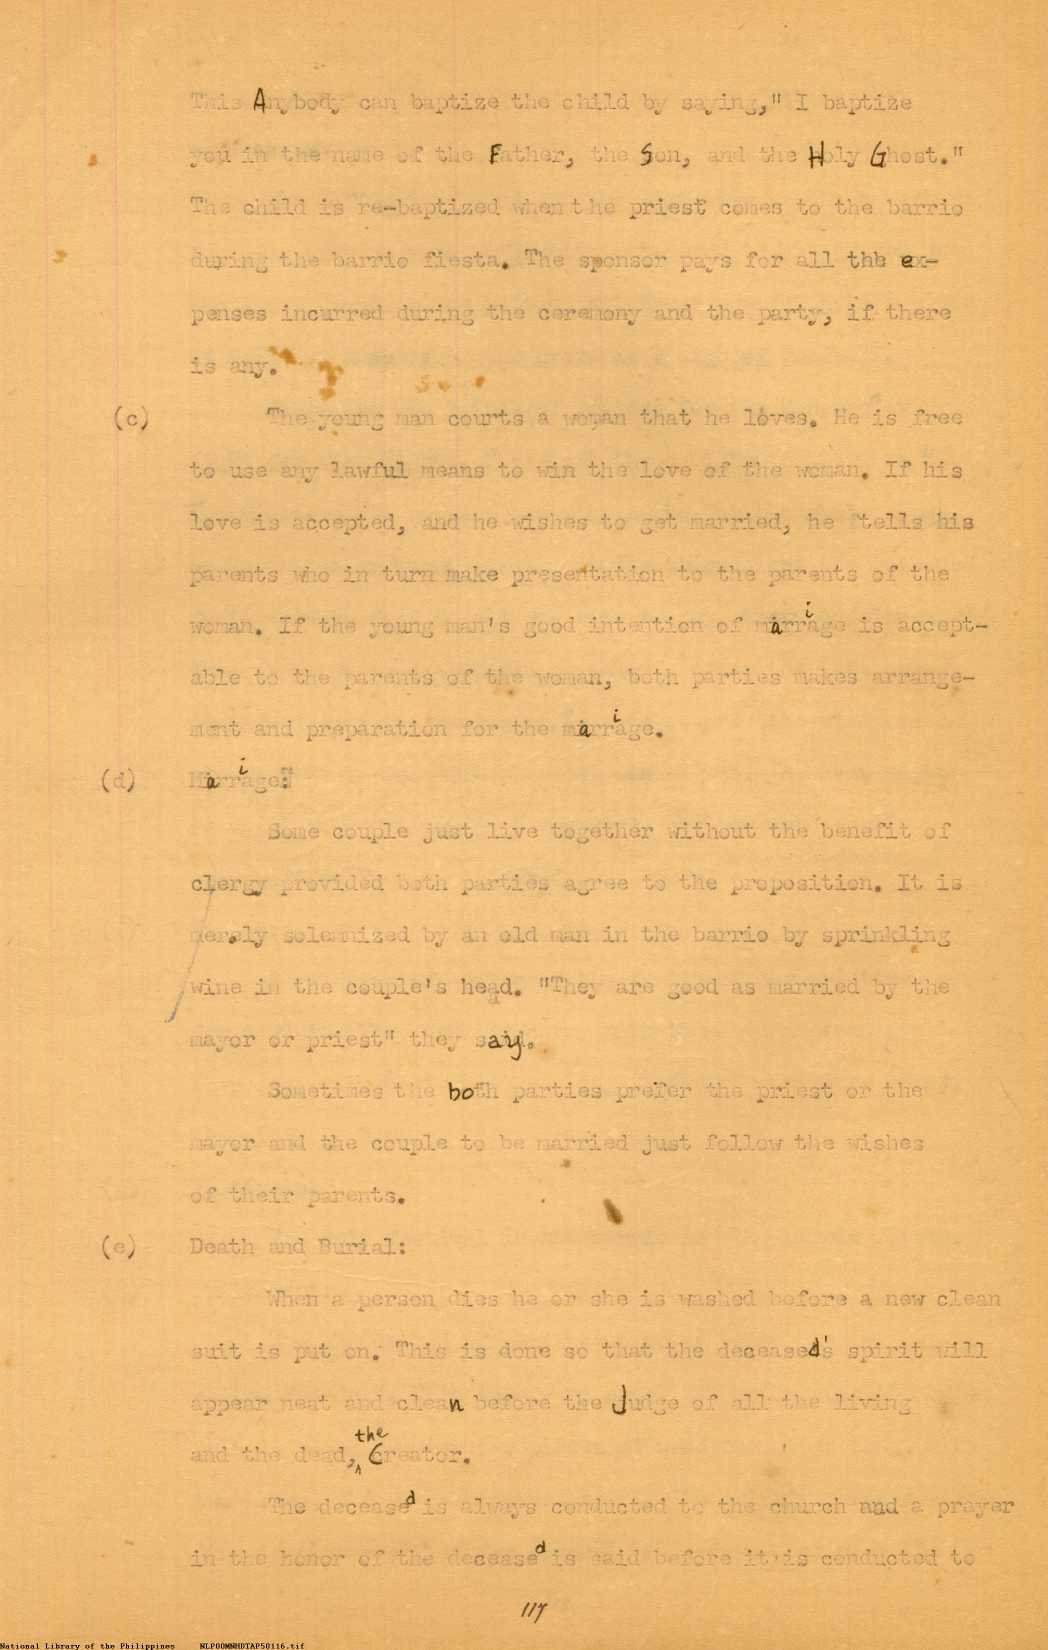 This Anybody can baptize the child by saying," I baptize
you in the name of the Father, the Son, and the Holy Ghost."
The child is re-baptized when the priest comes to the barrio
during the barrio fiesta. The sponsor pays for all the ex-
penses incurred during the ceremony and the party, if there
is any.
(c) The young man courts a woman that he loves. He is free
to use any lawful means to win the love of the woman. If his
love is accepted, and he wishes to get married, he tells his
parents who in turn make presentation to the parents of the
woman. If the young man's good intention of marriage is accept-
able to the parents of the woman, both parties makes arrange-
ment and preparation for the marriage.
(d) Marriage:
Some couple just live together without the benefit of
clergy provided both parties agree to the proposition. It is
merely solemnized by an old man in the barrio by sprinkling
wine in the couple's head. "They are good as married by the
mayor or priest" they say.
Sometimes the both parties prefer the priest or the
mayor and the couple to be married just follow the wishes
of their parents.
(e) Death and Burial:
When a person dies he or she is washed before a new clean
suit is put on. This is done so that the deceased's spirit will
appear neat and clean before the Judge of all the living
and the dead, the Creator.
The deceased is always conducted to the church and a prayer
in the honor of the deceased is said before it is conducted to
117
National Library of the Philippines NLP00MNHDTAP50116.tif